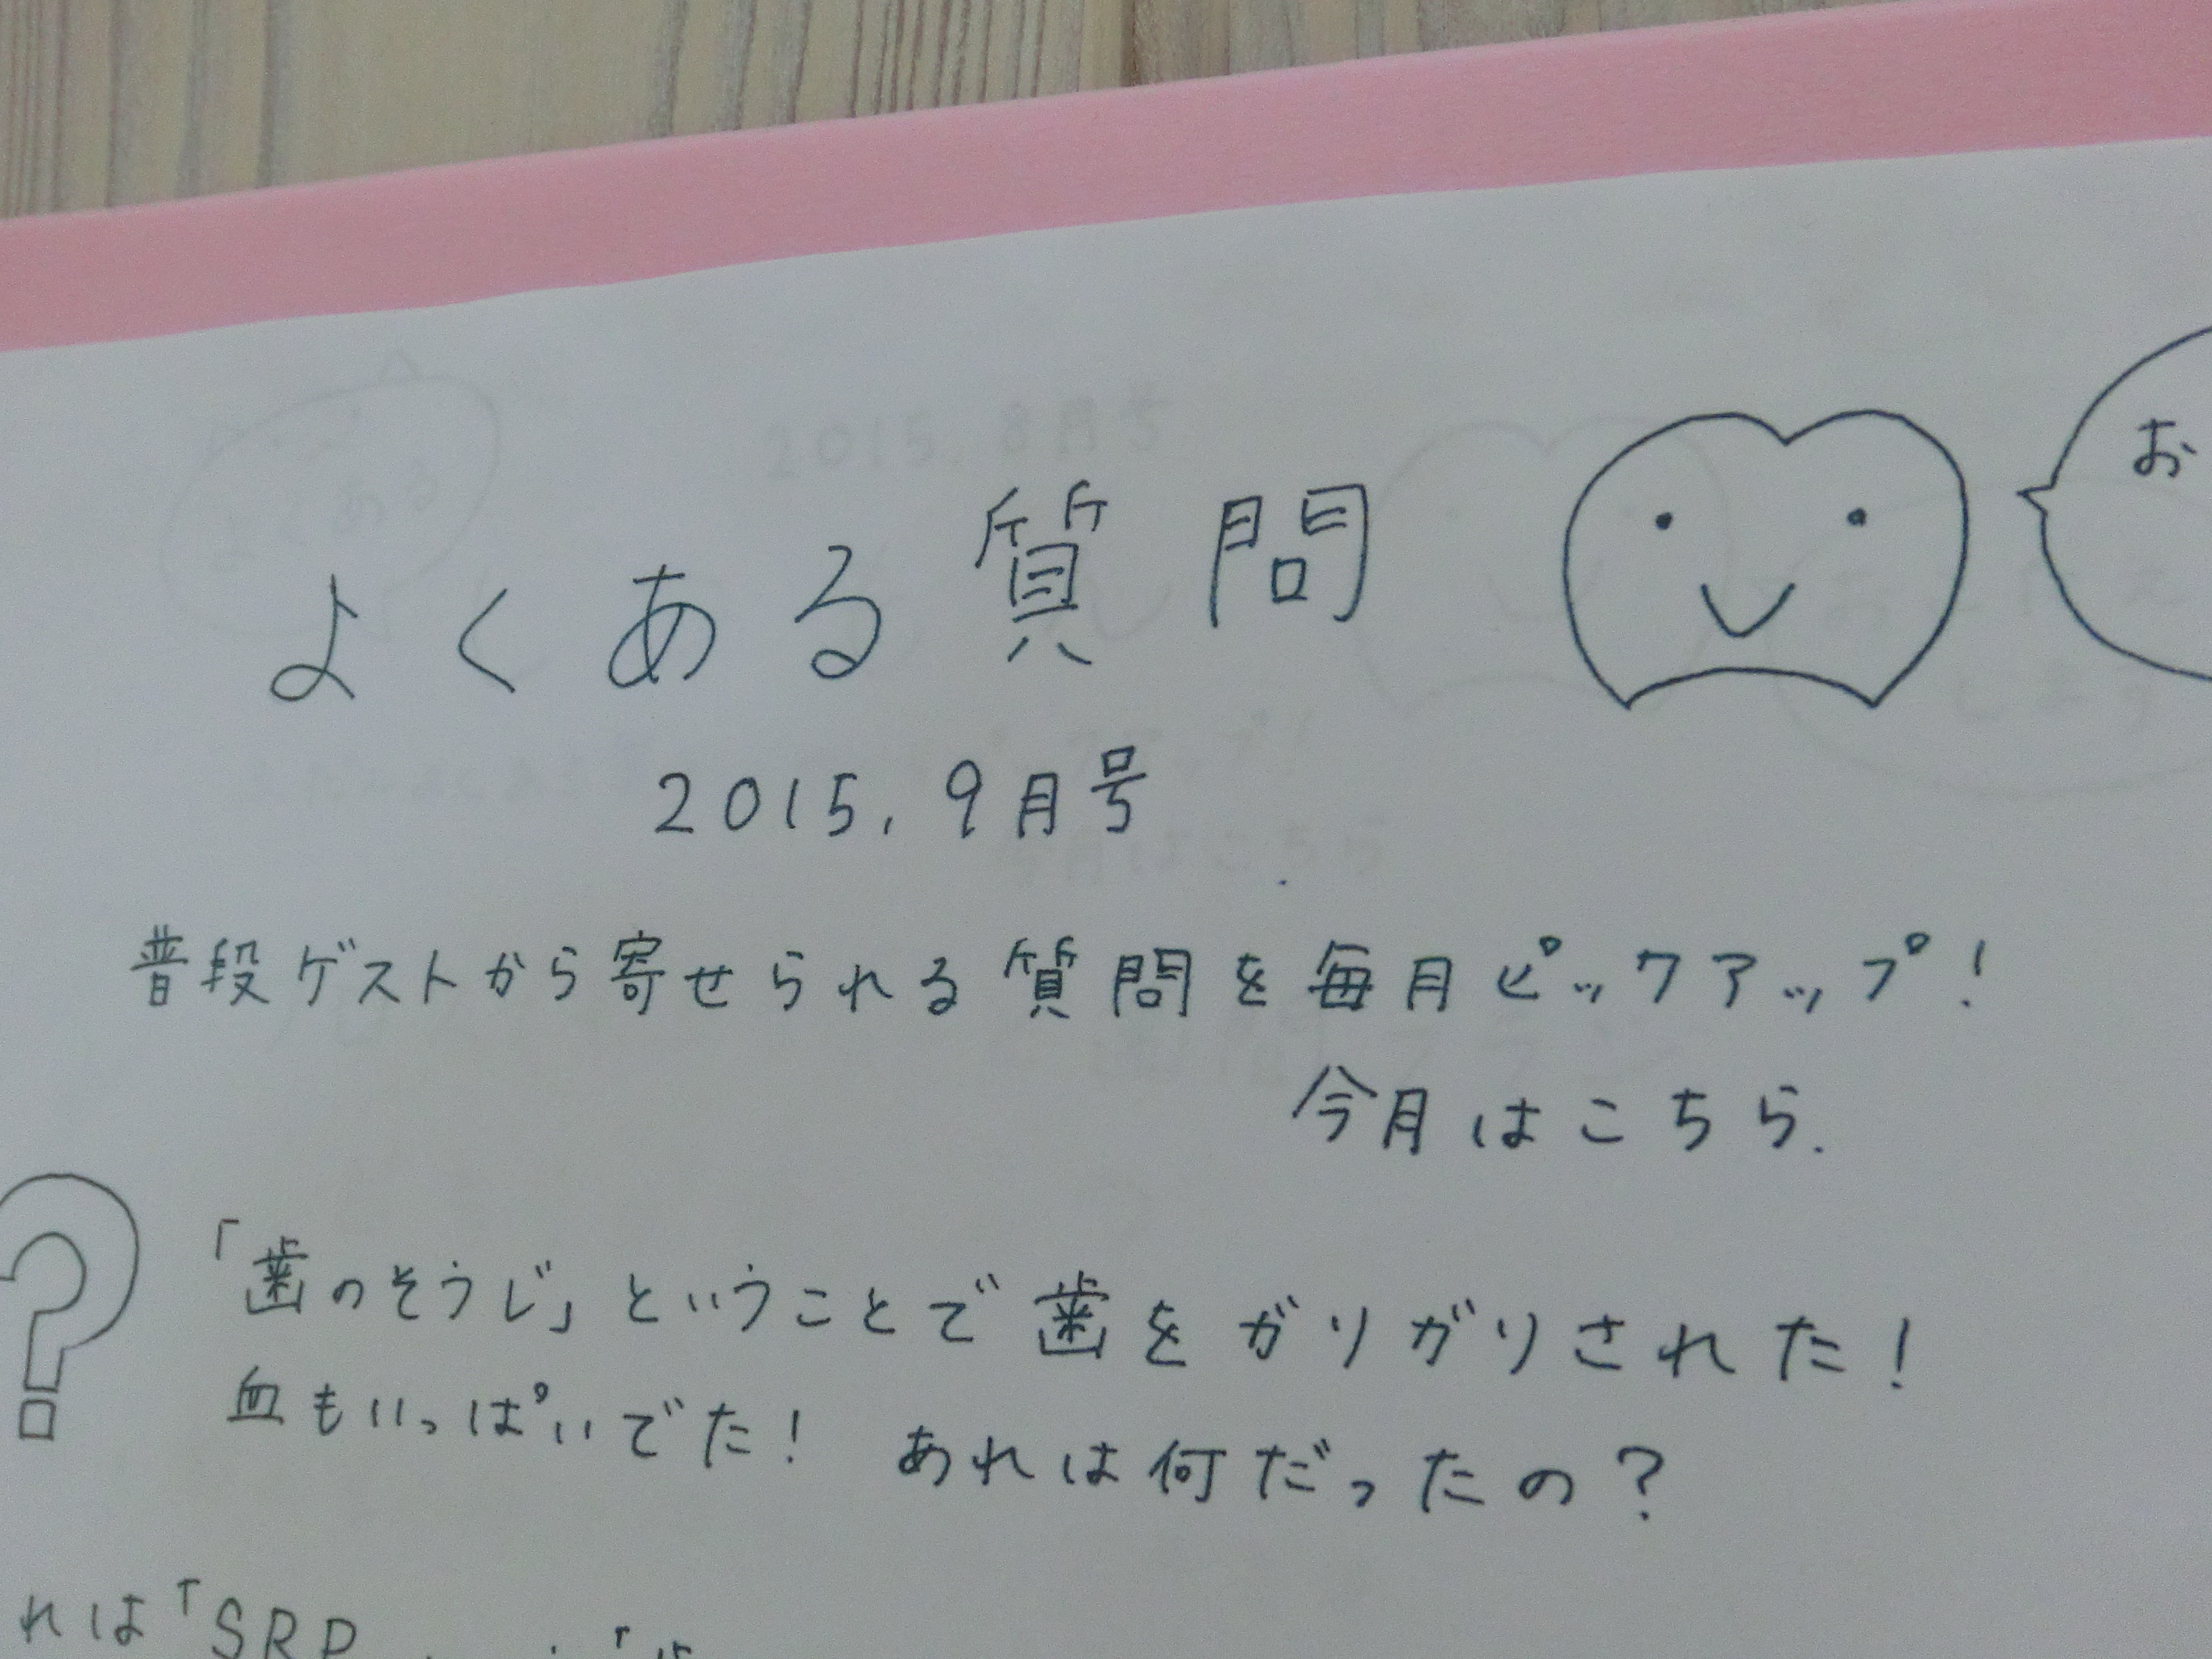 よくある質問
お
2015.9月号
普段ゲストから寄せられる質問を毎月ピックアップ!
今月はこちら.
? 「歯のそうじ」ということで歯をガリガリされた!
血もいっぱいでた! あれは何だったの?
れは「SRP